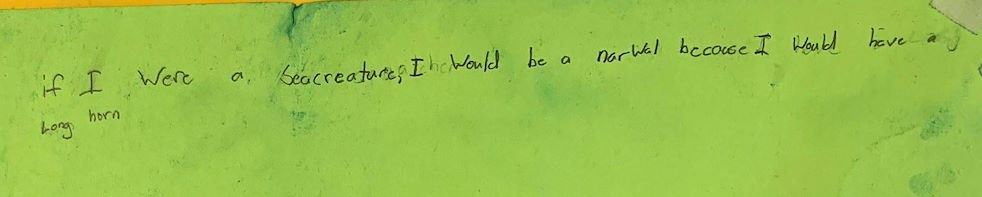 if I were a seacreature, I would be a narwal becouse I would have a
Long horn